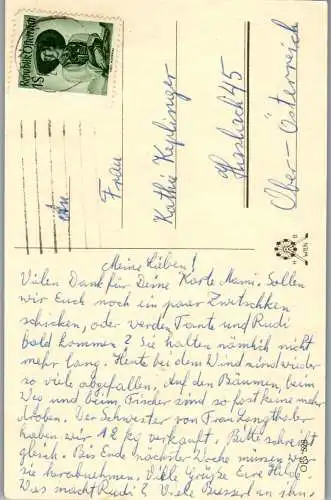 Republik Österreich
1S
An
Frau
Kathi Keplinger
Haslach 45
Ober-Österreich
H B
WIEN
Meine Lieben!
Vielen Dank für Deine Karte Mami. Sollen
wir Euch noch ein paar Zwetschken
schicken, oder werden Tante und Rudi
bald kommen? Sie halten nämlich nicht
mehr lang. Heute bei dem Wind sind wieder
so viele abgefallen. Auf den Bäumen, beim
Weg und beim Fischer sind so fast keine mehr
droben. Der Schwester von Frau
haben wir 12 kg verkauft. Bitte schreibt
gleich. Bis Ende nächster Woche müssen wir
sie herabnehmen. Viele Grüße Eure Hilde.
Was macht Rudi? Viele Busserl an ihn.